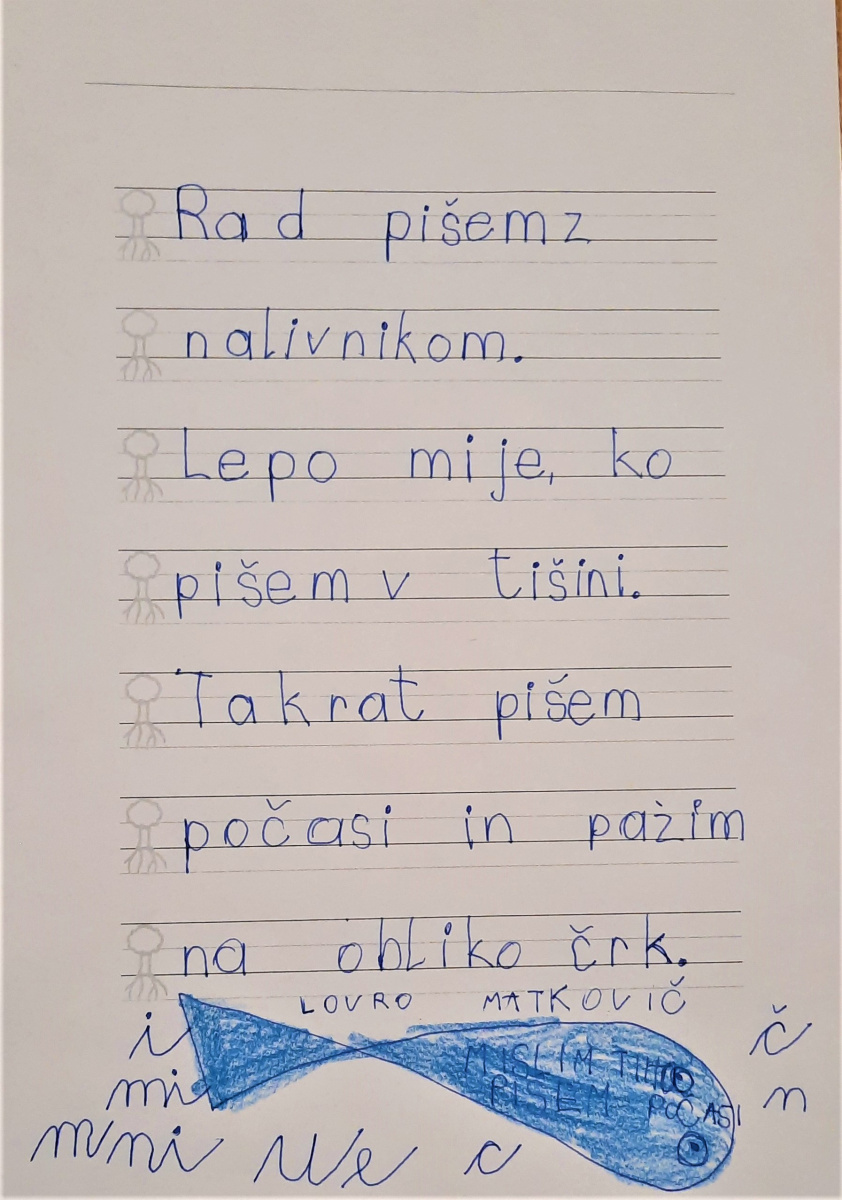 Rad pišem z
nalivnikom.
Lepo mi je, ko
pišem v tišini.
Takrat pišem
počasi in pažim
na obliko črk.
LOVRO MATKOVIČ
i č
MISLIM TIHO
mi PIŠEM POČASI n
c